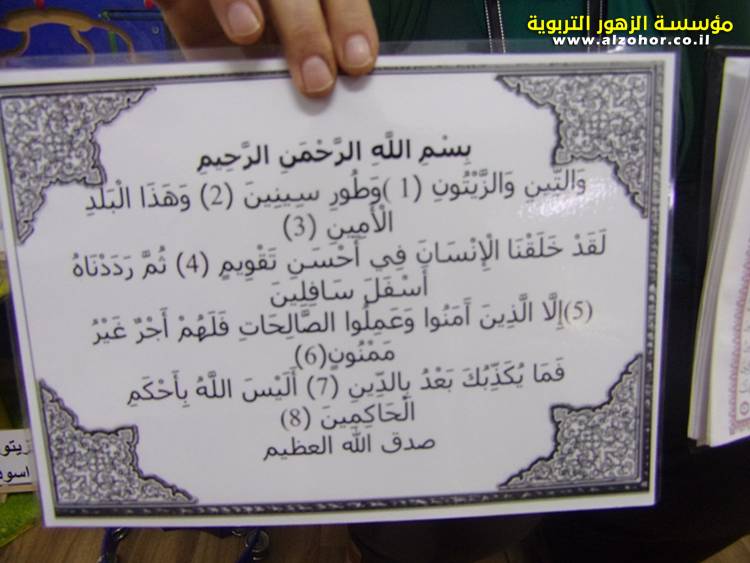 مؤسسة الزهور التربوية
www.alzohor.co.il
بِسْمِ اللَّهِ الرَّحْمَنِ الرَّحِيمِ
وَالتِّينِ وَالزَّيْتُونِ (1 )وَطُورِ سِينِينَ (2) وَهَذَا الْبَلَدِ
الْأَمِينِ (3)
لَقَدْ خَلَقْنَا الْإِنْسَانَ فِي أَحْسَنِ تَقْوِيمٍ (4) ثُمَّ رَدَدْنَاهُ
أَسْفَلَ سَافِلِينَ
(5)إِلَّا الَّذِينَ آَمَنُوا وَعَمِلُوا الصَّالِحَاتِ فَلَهُمْ أَجْرٌ غَيْرُ
مَمْنُونٍ(6)
فَمَا يُكَذِّبُكَ بَعْدُ بِالدِّينِ (7) أَلَيْسَ اللَّهُ بِأَحْكَمِ
الْحَاكِمِينَ (8)
صدق الله العظيم
زيتو
اسود